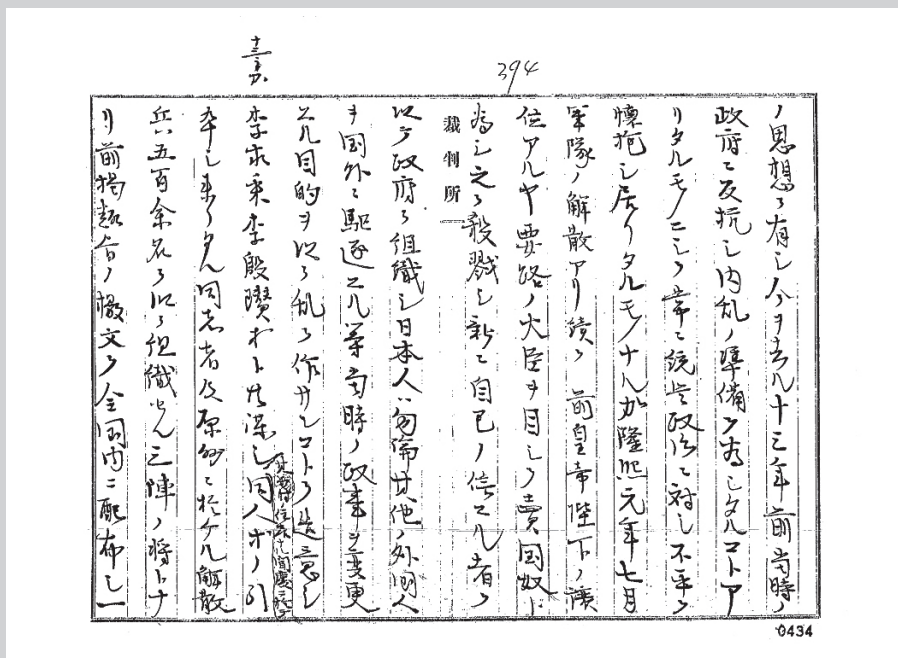 394
ノ思想ヲ有シ今ヲ去ル十三年前当時ノ
政府ニ反抗シ内乱ノ準備ヲ為シタルコトア
リタルモノニシテ常ニ統監政治ニ対シ不平ヲ
懐抱シ居リタルモノナル処隆熙元年七月
軍隊ノ解散アリ続テ前皇帝陛下ノ譲
位アルヤ要路ノ大臣ヲ目シテ売国奴ト
為シ之ヲ殺戮シ新ニ自己ノ信スル者ヲ
裁判所
以テ政府ヲ組織シ日本人ハ勿論其他ノ外国人
ヲ国外ニ駆逐スル等当時ノ政事ヲ変更
スル目的ヲ以テ乱ヲ作サンコトヲ造意シ
李求采李殷瓚オト共謀シ同人オノ引
率シ来リタル同志者及原州ニ於ケル解散
兵五百余名ヲ以テ組織セル三陣ノ将トナ
リ前掲趣旨ノ檄文ヲ全国内ニ配布シ一
0434